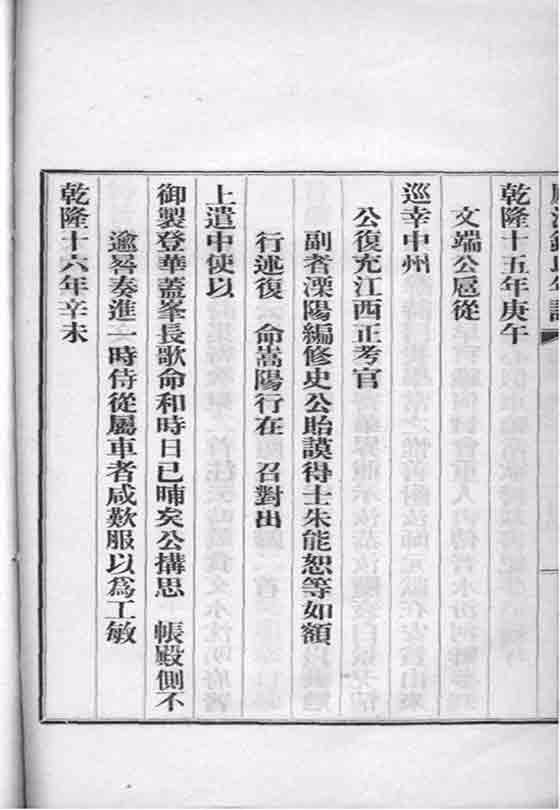 乾隆十五年庚午
文端公扈從
巡幸中州
公復充江西正考官
副者溧陽編修史公貽謨得士朱能恕等如額
行述復 命嵩陽行在 召對出
上遣中使以
御製登華蓋峯長歌命和時日已晡矣公搆思 帳殿側不
逾晷奏進一時侍從屬車者咸歎服以為工敏
乾隆十六年辛未